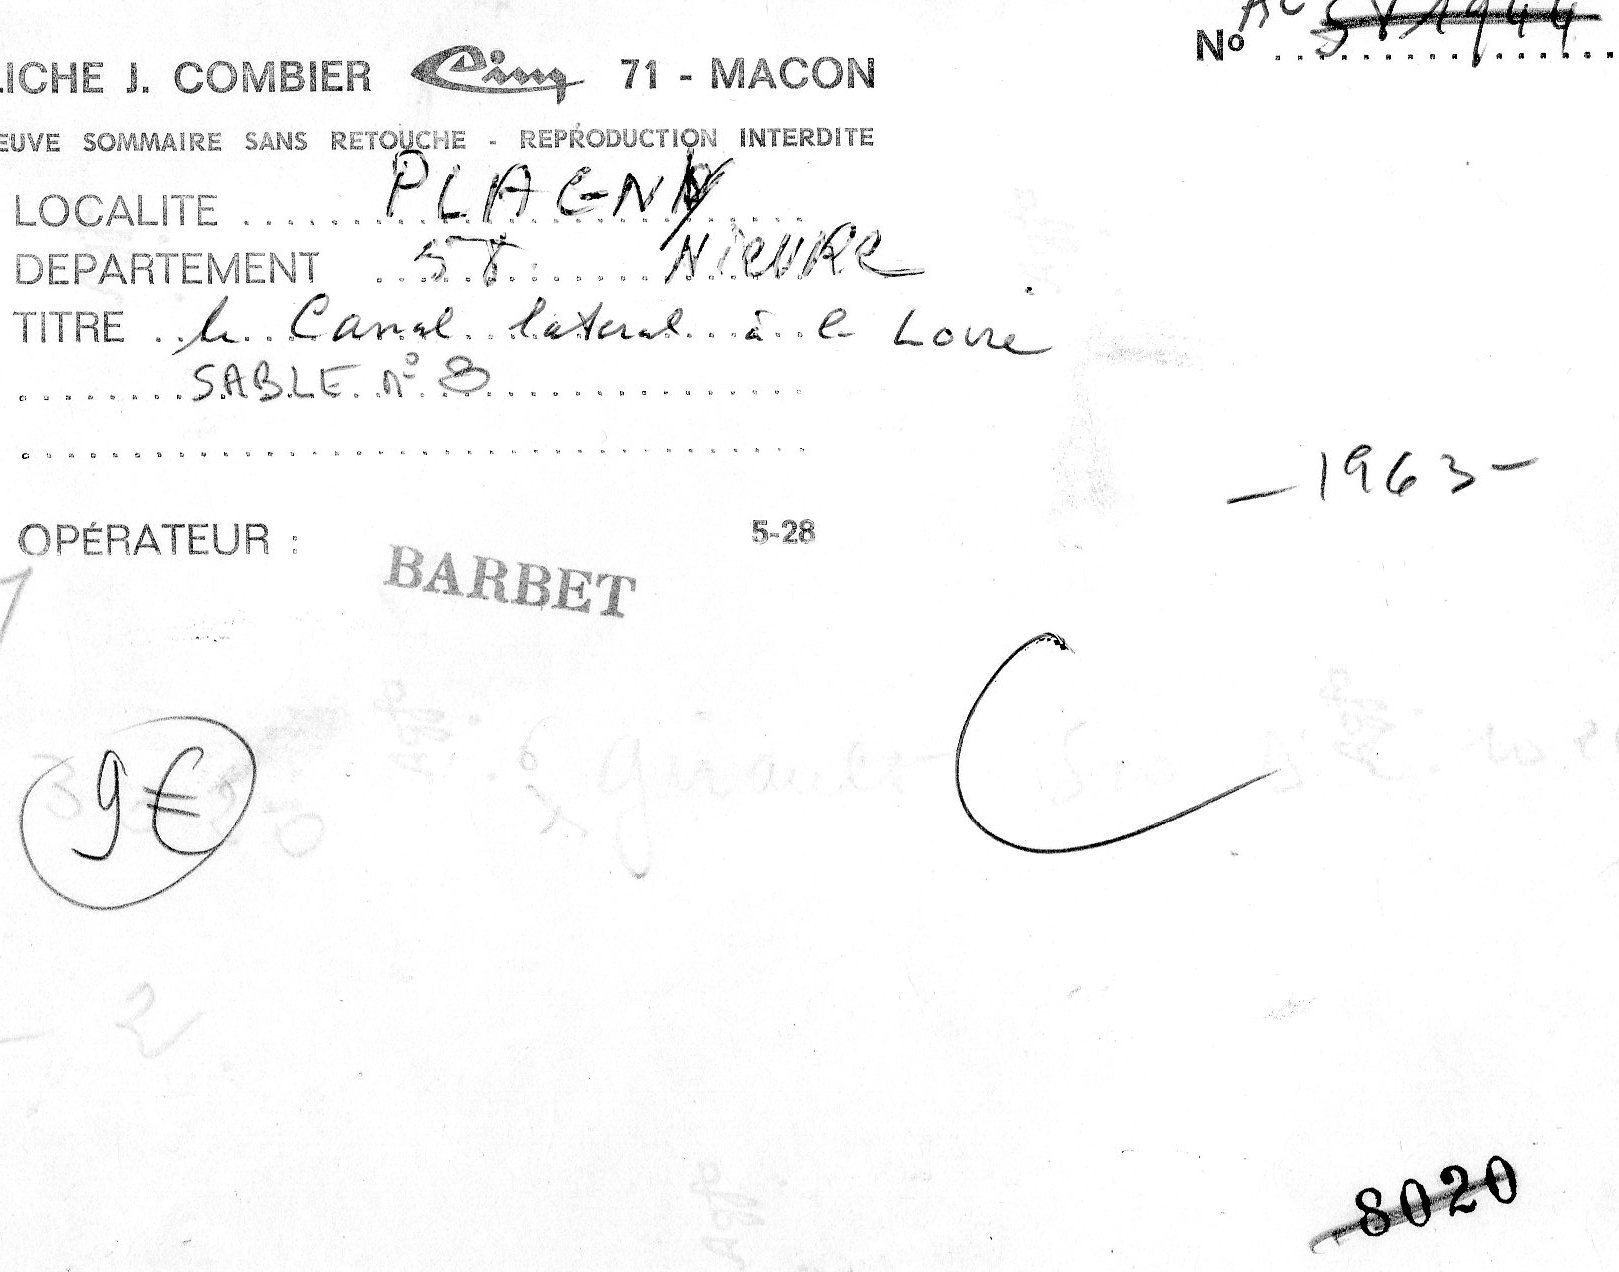 Nº AC 581944
LICHE J. COMBIER Cim 71 - MACON
EUVE SOMMAIRE SANS RETOUCHE - REPRODUCTION INTERDITE
LOCALITE PLAGNY
DEPARTEMENT 58 NIEVRE
TITRE le Canal lateral à la Loire
SABLE nº 8
-1963-
OPÉRATEUR : 5-28
BARBET
9€
Agfa
2
8020
Agfa